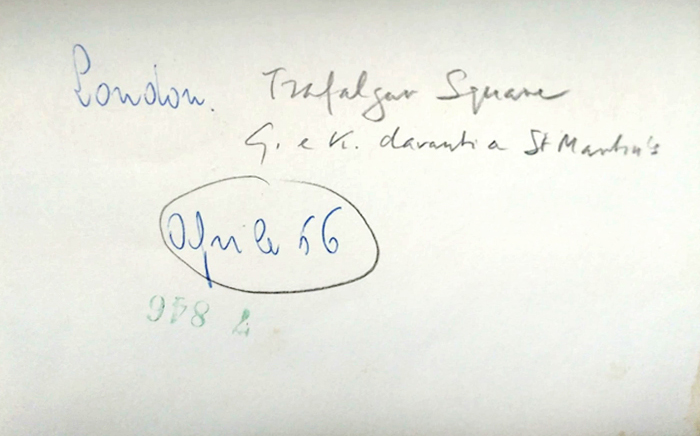 London. Trafalgar Square
G. e K. davanti a St Martin's
Aprile 56